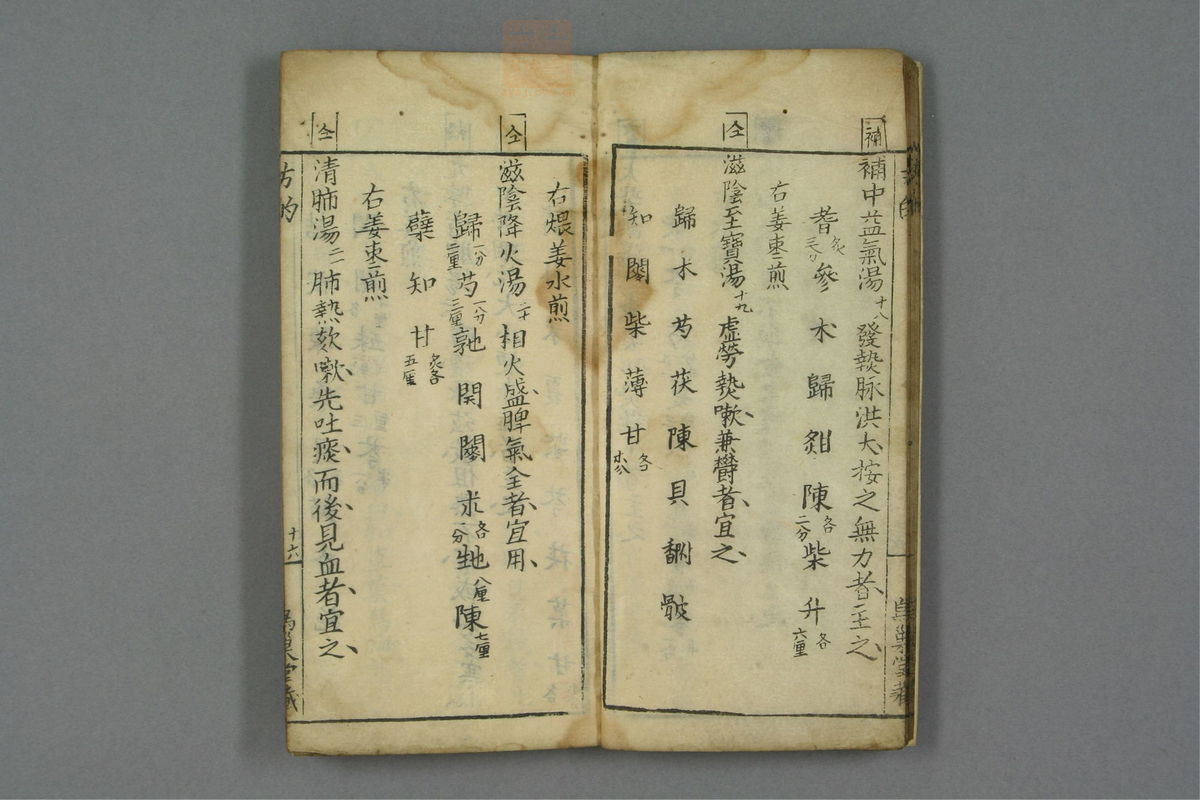 補
補中益氣湯十八 發熱脉洪大按之無力者主之
耆 炙 三分 參 朮 歸 陳 各二分 柴 升 各六厘
右姜枣煎
仝
滋陰至寶湯十九 虛勞熱嗽兼欝者宜之
歸 朮 芍 茯 陳 貝 骰
知 門 柴 薄 甘 各
右煨姜水煎
仝
滋陰降火湯二十 相火盛脾氣全者宜用
歸 一分二厘 芍 一分三厘 門 朮 各分 陳 七厘
蘗 知 甘 炙各五厘
右姜枣煎
仝
清肺湯二一 肺熱欬嗽先吐痰而後見血者宜之
方的
十六